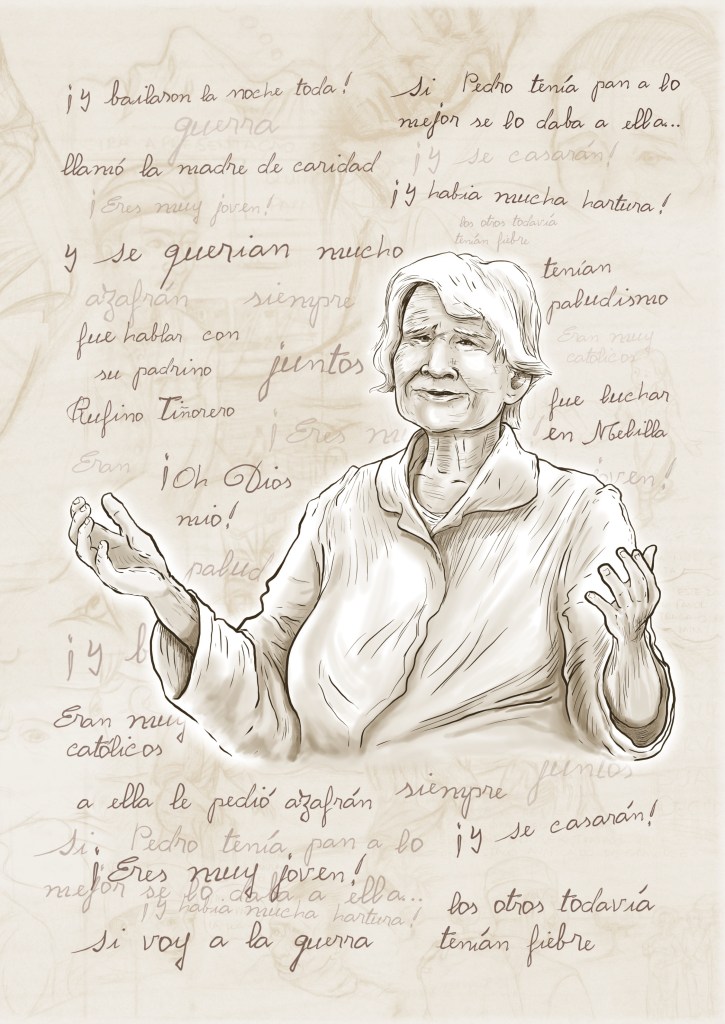 ¡Y bailaron la noche toda!
guerra
llamó la madre de caridad
¡Eres muy joven!
y se querian mucho
azafrán siempre
fue hablar con
su padrino
Rufino Tiñorero
juntos
Eran
¡Oh Dios
mio!
palud
¡Y b
Si Pedro tenía pan a lo
mejor se lo daba a ella...
¡Y se casarán!
¡Y habia mucha hartura!
los otros todavía
tenían fiebre
tenían
paludismo
Eran muy
católicos
¡Eres mu
fue luchar
en Melilla
joven!
Eran muy
católicos
juntos
a ella le pedió azafrán
siempre
¡Y se casarán!
Si Pedro tenía pan a lo
¡Eres muy joven!
mejor se lo daba a ella...
¡Y habia mucha hartura!
los otros todavía
tenían fiebre
Si voy a la guerra